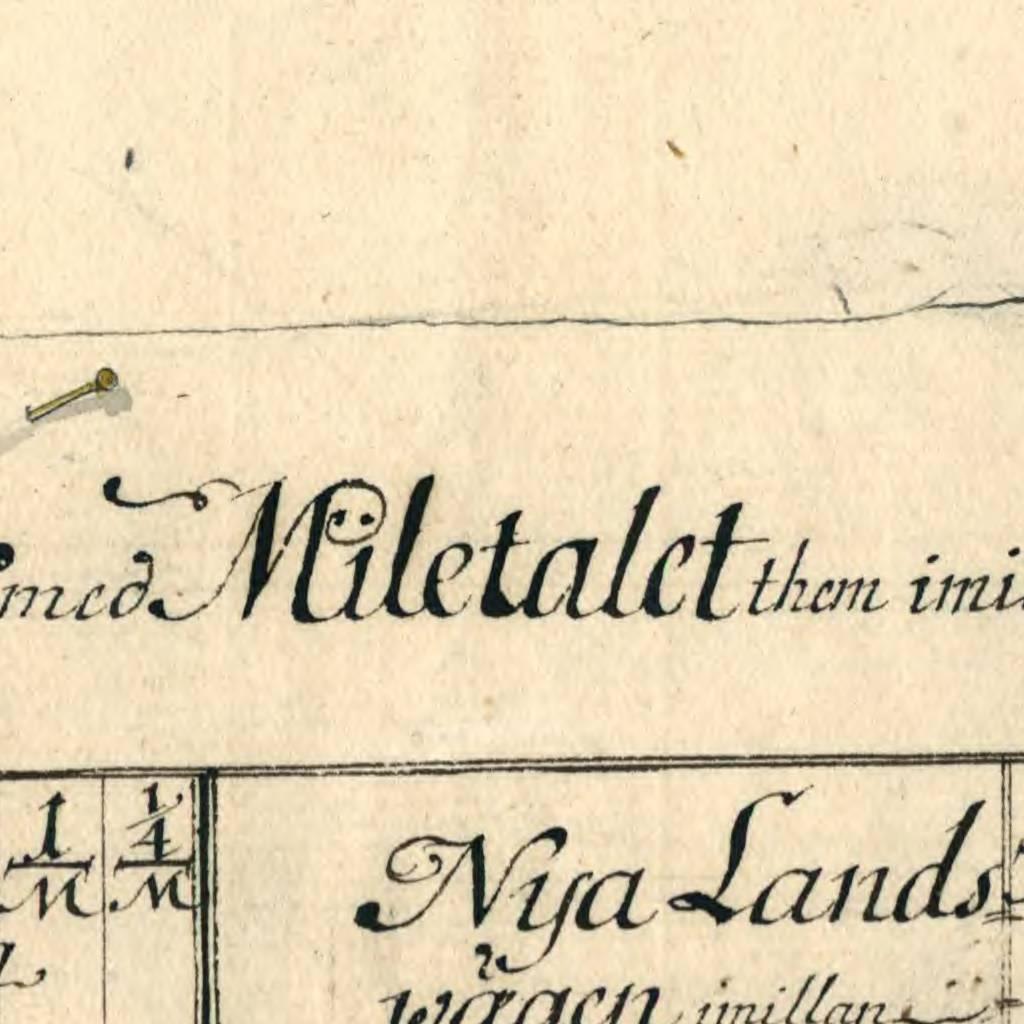 med Miletalet them imi
1/M 1/4 M
Nya Lands
wägen imillan